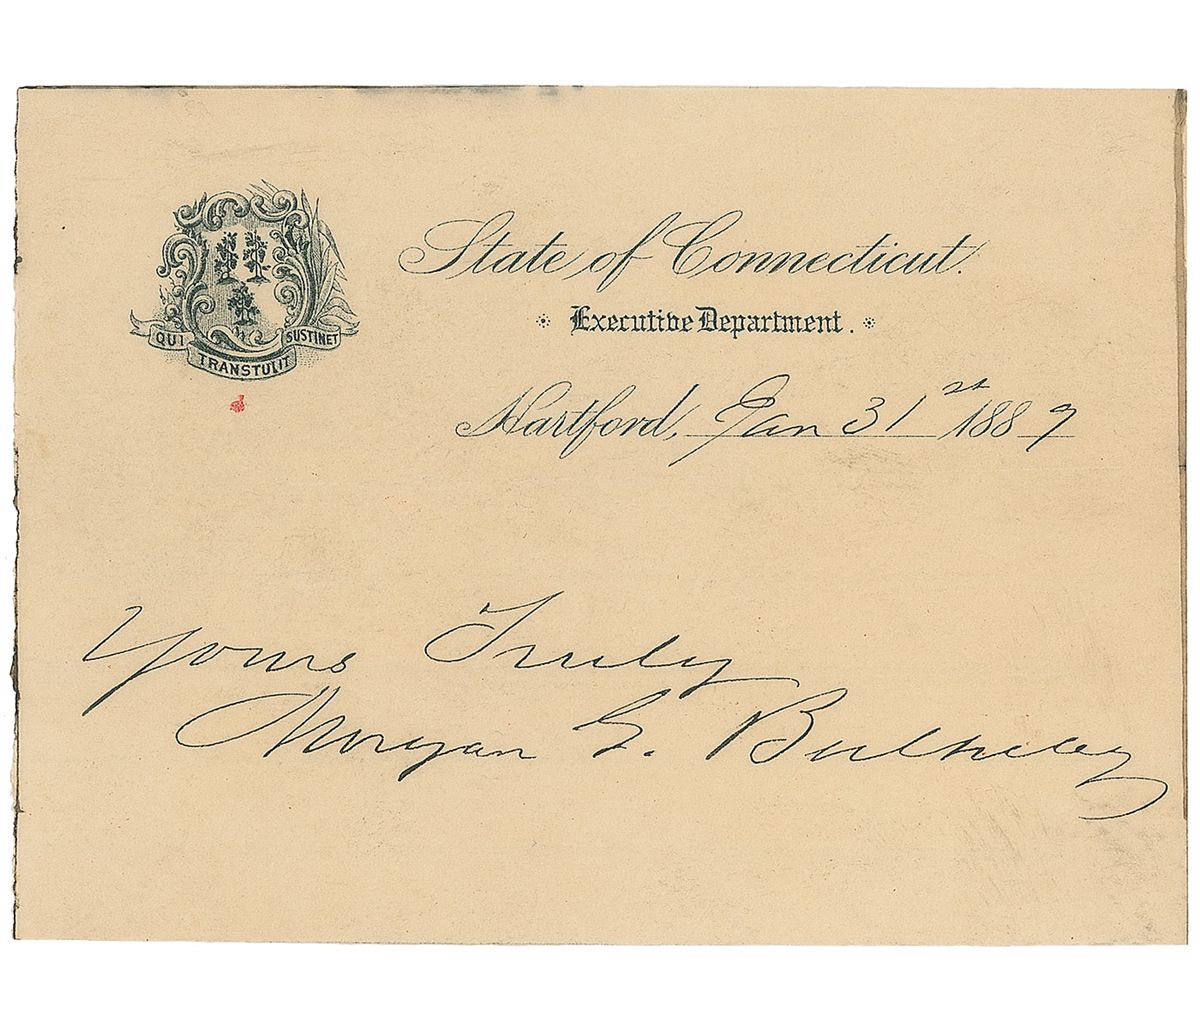 QUI TRANSTULIT SUSTINET
State of Connecticut.
Executive Department.
Hartford, Jan 31st 1889
Yours Truly
Morgan G. Bulkeley